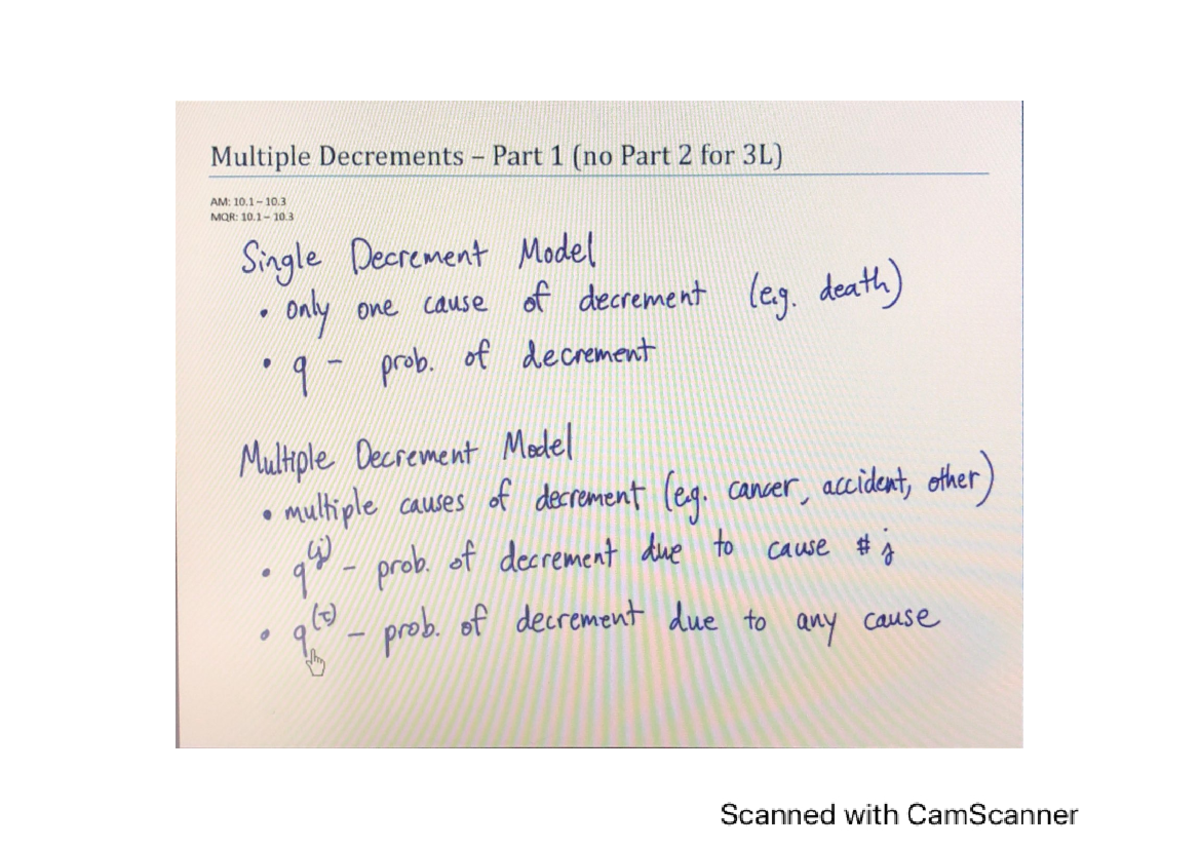 Multiple Decrements – Part 1 (no Part 2 for 3L)
AM: 10.1 – 10.3
MQR: 10.1 – 10.3
Single Decrement Model
• only one cause of decrement (e.g. death)
• q – prob. of decrement
Multiple Decrement Model
• multiple causes of decrement (e.g. cancer, accident, other)
• q^(j) – prob. of decrement due to cause # j
• q^(τ) – prob. of decrement due to any cause
Scanned with CamScanner